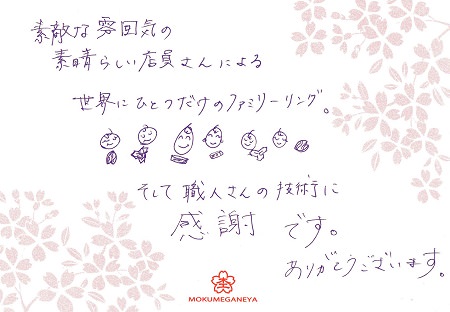 素敵な雰囲気の
素晴らしい店員さんによる
世界にひとつだけのファミリーリング。
そして職人さんの技術に
感謝です。
ありがとうございます。
MOKUMEGANEYA